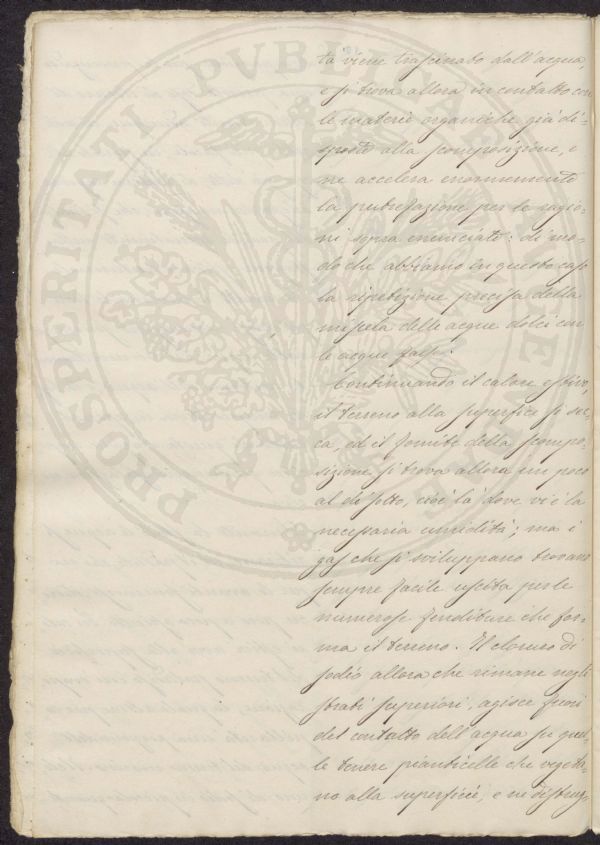 ta viene trascinato dall'acqua,
e si trova allora in contatto con
le materie organiche già di=
sposte alla scomposizione, e
ne accelera enormemente
la putrefazione per le ragio=
ni sopra enunciate: di mo=
do che abbiamo in questo caso
la ripetizione precisa della
miscela delle acque dolci con
le acque salse.
Continuando il calore estivo,
il terreno alla superficie si sec=
ca, ed il fomite della scompo=
sizione si trova allora un poco
al di sotto, cioè là dove vi è la
necessaria umidità; ma i
gas che si sviluppano trovano
sempre facile uscita per le
numerose fenditure che for=
ma il terreno. Il cloruro di
sodio allora che rimane negli
strati superiori, agisce fuori
del contatto dell'acqua su quel
le tenere pianticelle che vegeta=
no alla superficie, e ne distrug=
PROSPERITATI PVBLICAE